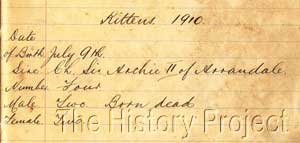 Kittens. 1910.
Date
of Birth July 9th.
Sire Ch. Sir Archie II of Arrandale.
Number Four
Male Two Born dead
Female Two
The History Project